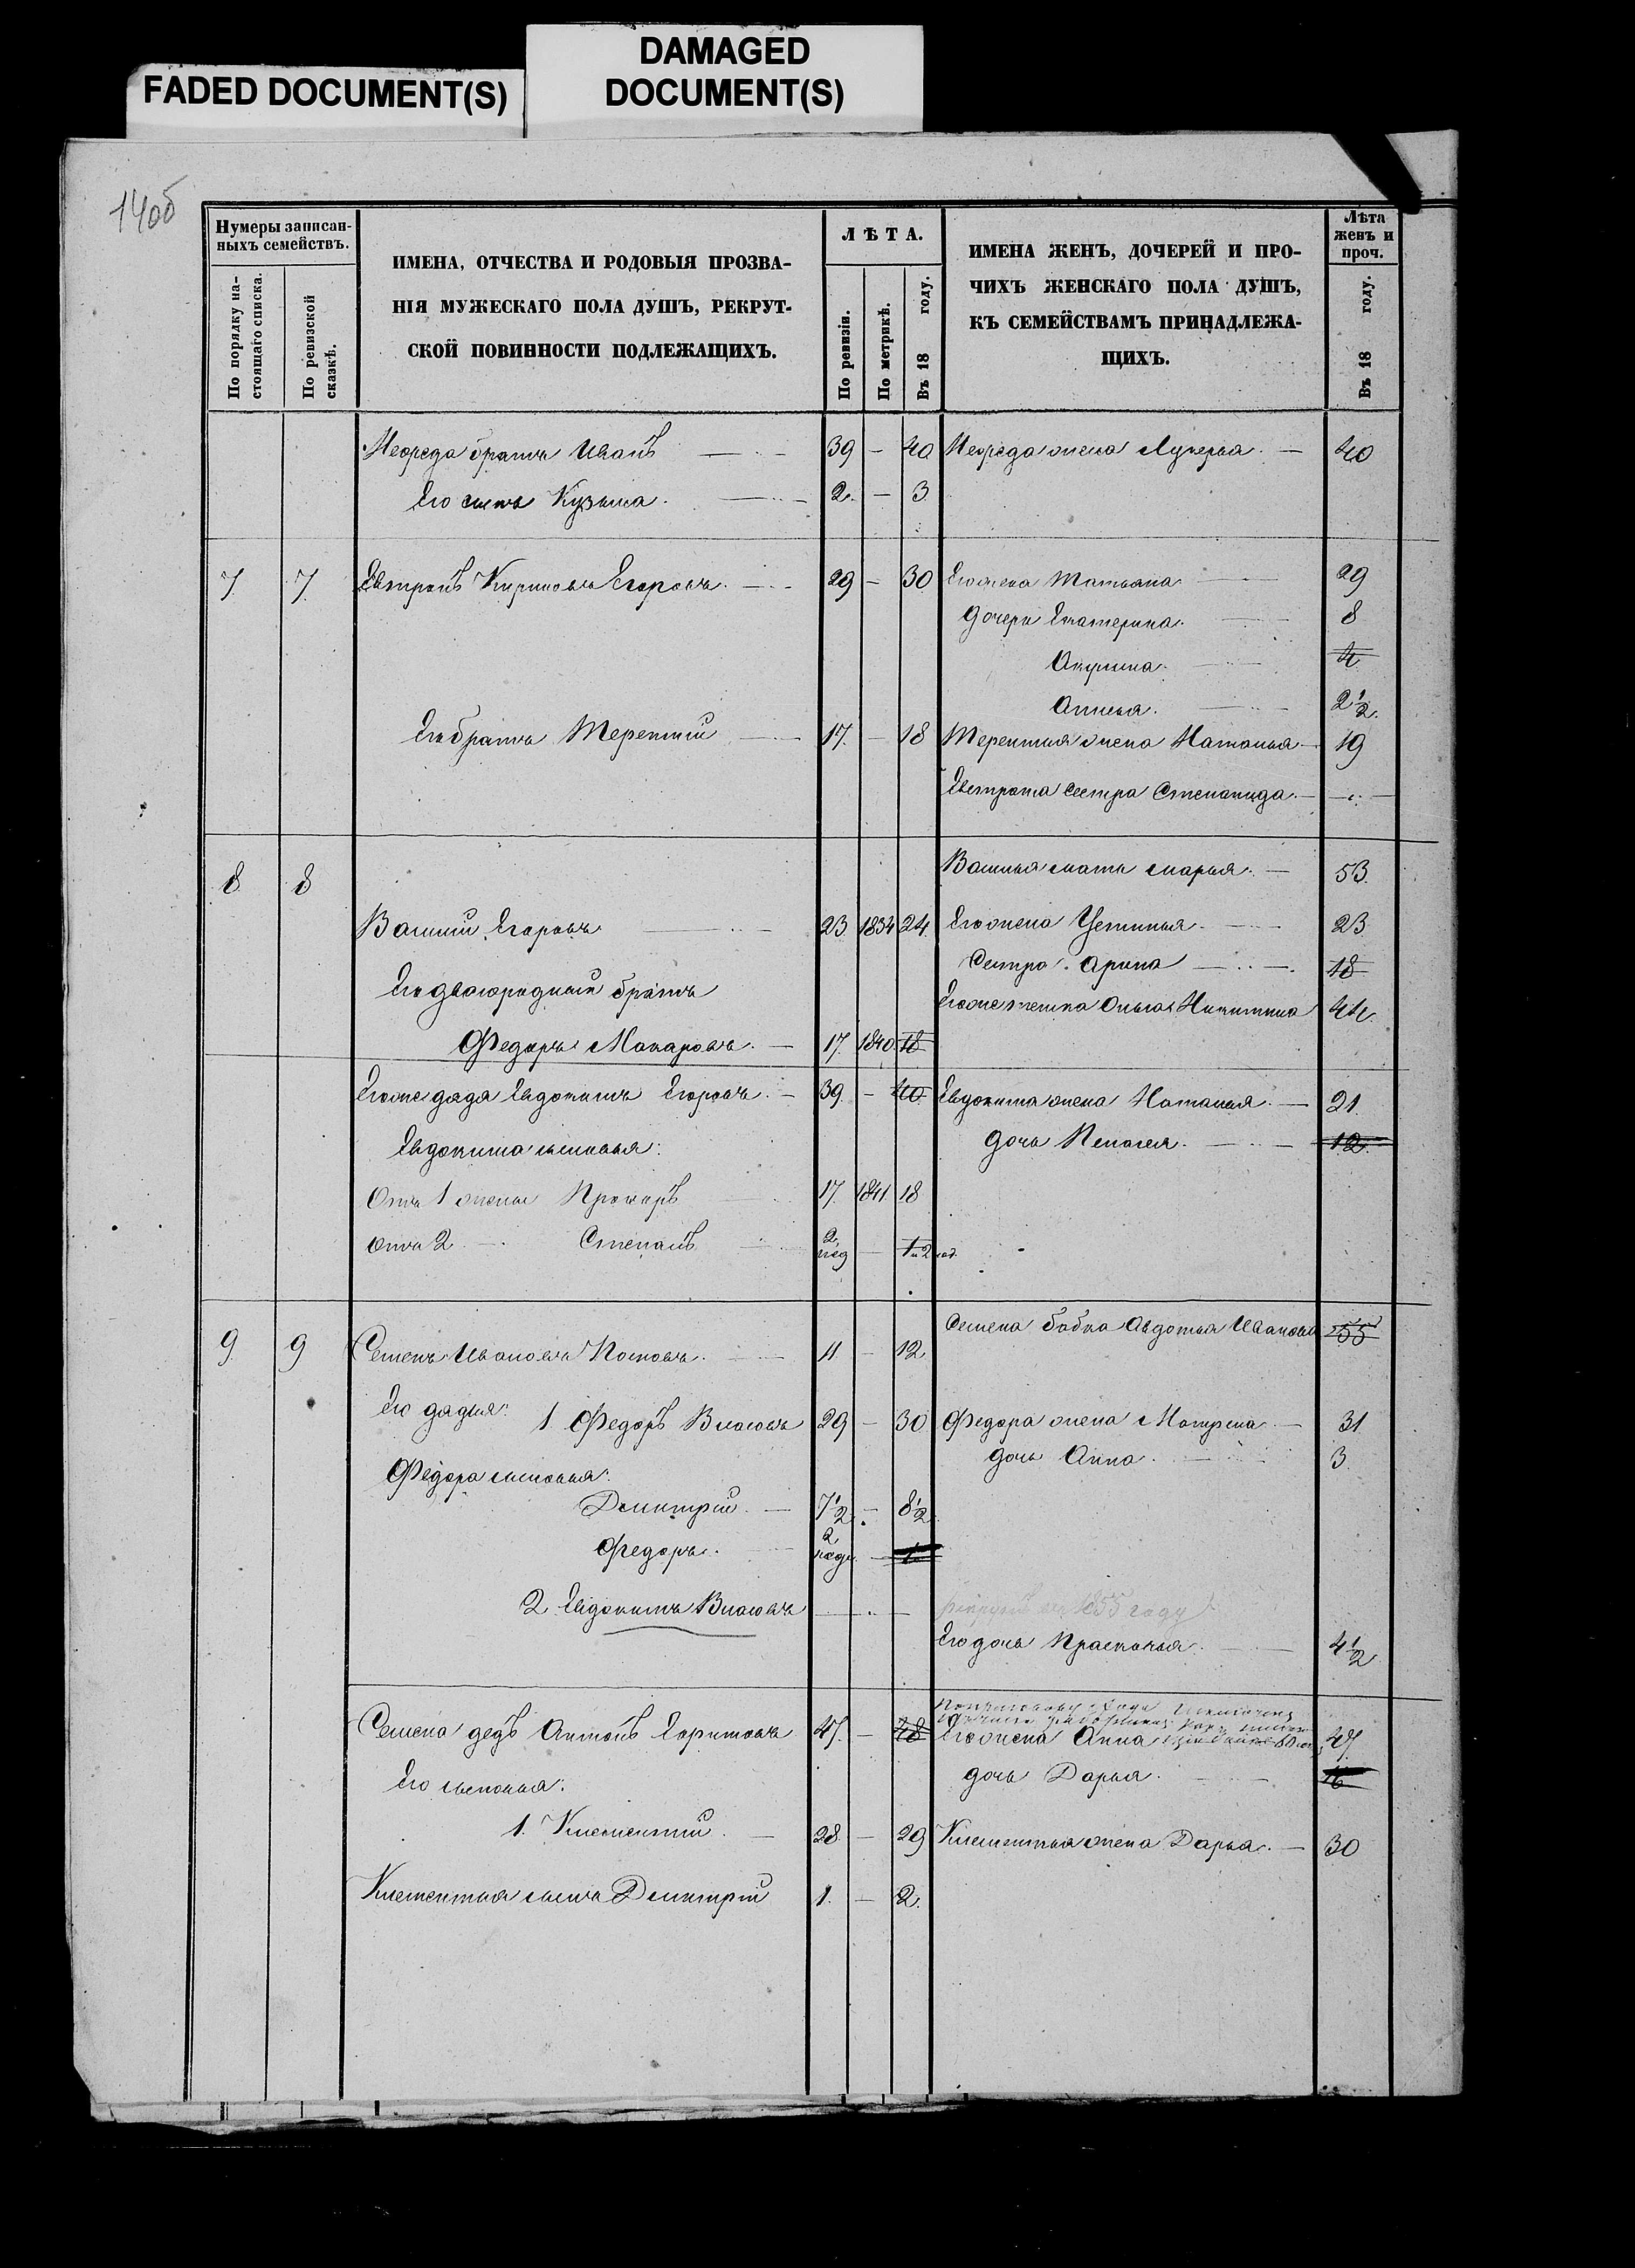 FADED DOCUMENT(S)
DAMAGED
DOCUMENT(S)
14об
Нумеры записан-
ныхъ семействъ.
По порядку на-
стоящаго списка.
По ревизской
сказкѣ.
ИМЕНА, ОТЧЕСТВА И РОДОВЫЯ ПРОЗВА-
НІЯ МУЖЕСКАГО ПОЛА ДУШЪ, РЕКРУТ-
СКОЙ ПОВИННОСТИ ПОДЛЕЖАЩИХЪ.
ЛѢТА.
По ревизіи.
По метрикѣ.
Въ 18 году.
ИМЕНА ЖЕНЪ, ДОЧЕРЕЙ И ПРО-
ЧИХЪ ЖЕНСКАГО ПОЛА ДУШЪ,
КЪ СЕМЕЙСТВАМЪ ПРИНАДЛЕЖА-
ЩИХЪ.
Лѣта
женъ и
проч.
Въ 18 году.
братъ Иванъ — 39 — 40 жена Лукерья. — 40
Его сынъ Кузьма. — 2. — 3
7 7 Евтропъ Егоровъ. — 29 — 30 Его жена Татьяна 29
дочери Екатерина. 8
Акулина. 4
2½
Его братъ Терентій — 17. — 18 Терентія жена Наталья — 19
сестра Степанида. —
8 8 мать Марья. — 53.
Егоровъ 23 1834 24. Его жена Устинья. 23
Сестра Арина — 18
Его двоюродный братъ
Его же тетка Ольга Никитина 44.
Федоръ Макаровъ. — 17. 1840 18
Его же дядя Евдокимъ Егоровъ. — 39. — 40 Евдокима жена Наталья. — 21.
Евдокима сыновья: дочь Пелагея. — 12
Отъ 1 жены Прохоръ 17. 1841 18
отъ 2 — Степанъ 2 нед — 1
9 9 Семенъ Ивановъ 11. — 12 Семена бабка Авдотья Иванова 55
Его дядья: 1. Федоръ Власовъ 29 — 30 Федора жена Матрена — 31
дочь Анна. 3.
Федора сыновья:
Дмитрій. — 7½ — 8½
Федоръ. 2 неди — 1
2. Евдокимъ Власовъ — 1855 году
Его дочь Прасковья. 4½
Семена дедъ Антонъ 47. — 48 Его жена Анна 47.
Его сыновья: дочь Дарья. 16
1. Клементій. — 28. — 29 Клементья жена Дарья. — 30
Клементья сынъ Дмитрій 1. — 2.